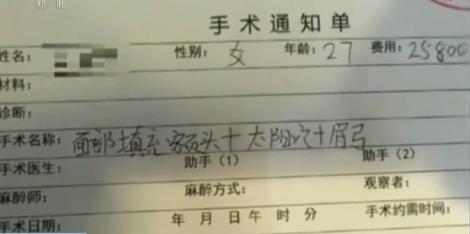 新闻
手术通知单
姓名: 性别: 女 年龄: 27 费用: 25800
材料:
诊断:
手术名称: 面部填充额头+太阳穴+眉弓
手术医生: 助手(1) 助手(2)
麻醉师: 麻醉方式: 观察者:
手术日期: 年 月 日 午 时 分 手术约需时间: